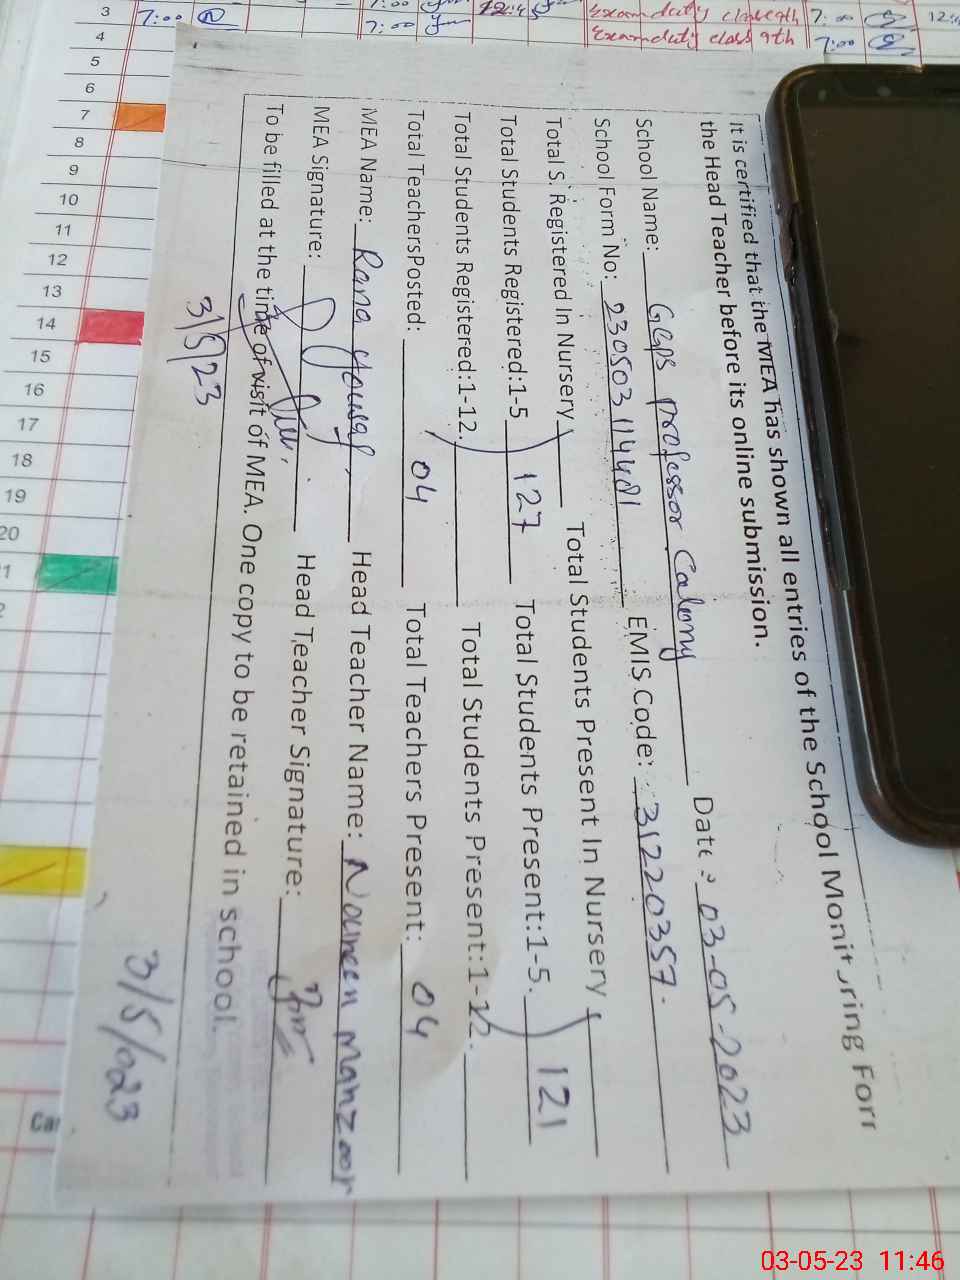 It is certified that the MEA has shown all entries of the School Monitoring Form
the Head Teacher before its online submission.
School Name: GGPS Professor Colony Date: 03-05-2023
School Form No: 230503 EMIS Code: 31220357.
Total S. Registered In Nursery Total Students Present In Nursery
Total Students Registered:1-5 127 Total Students Present:1-5. 121
Total Students Registered:1-12. Total Students Present:1-12.
Total TeachersPosted: 04 Total Teachers Present: 04
MEA Name: Rana Yousaf, Head Teacher Name: Noureen Manzoor
MEA Signature: Head Teacher Signature:
To be filled at the time of visit of MEA. One copy to be retained in school.
3/5/23
3/5/023
3 7:00
7:00 Exam duty class 9th 7:00
4 Exam duty class 9th 7:00
5
6
7
8
9
10
11
12
13
14
15
16
17
18
19
20
03-05-23 11:46